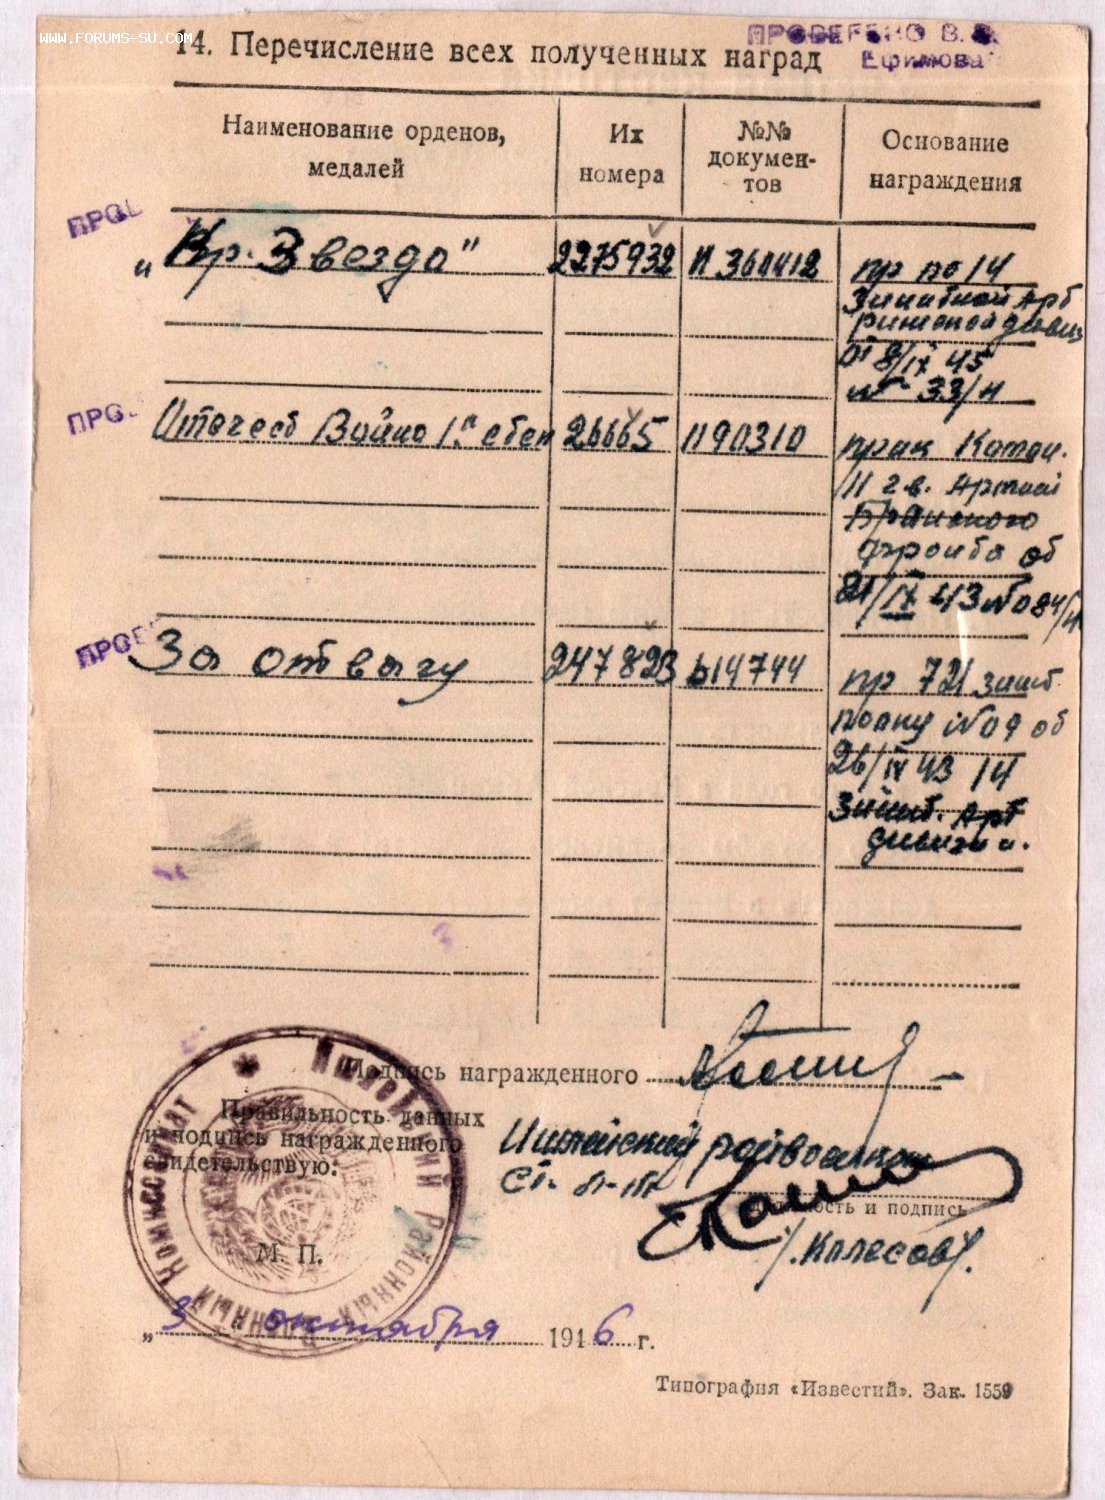 www.forums-su.com
ПРОВЕРЕНО В.
Ефимова
14. Перечисление всех полученных наград
Наименование орденов, медалей
Их номера
№№ документов
Основание награждения
ПРОВ
"Кр. Звезда" 2275932 И 360412 пр по 14
Зинитной Арт
дивиз
от 8/IX 45
№ 33/н
ПРО
Отечеств Война I й степ 26665 П90310 прик Коман.
11 гв. Армией
Брянского
фронта от
21/IX 43 № 084/н
ПРОВЕ
За отвагу 247823 Б14744 пр 721 зинт
полку № 09 от
26/IV 43 14
Зинит. Арт
дивизии.
Подпись награжденного
Правильность данных
и подпись награжденного
свидетельствую:
райвоенком
Ст. л-нт
Должность и подпись
/. Колесов /.
М. П.
Районный Военный Комиссариат
„ 3 " октября 1946 г.
Типография «Известий». Зак. 1559